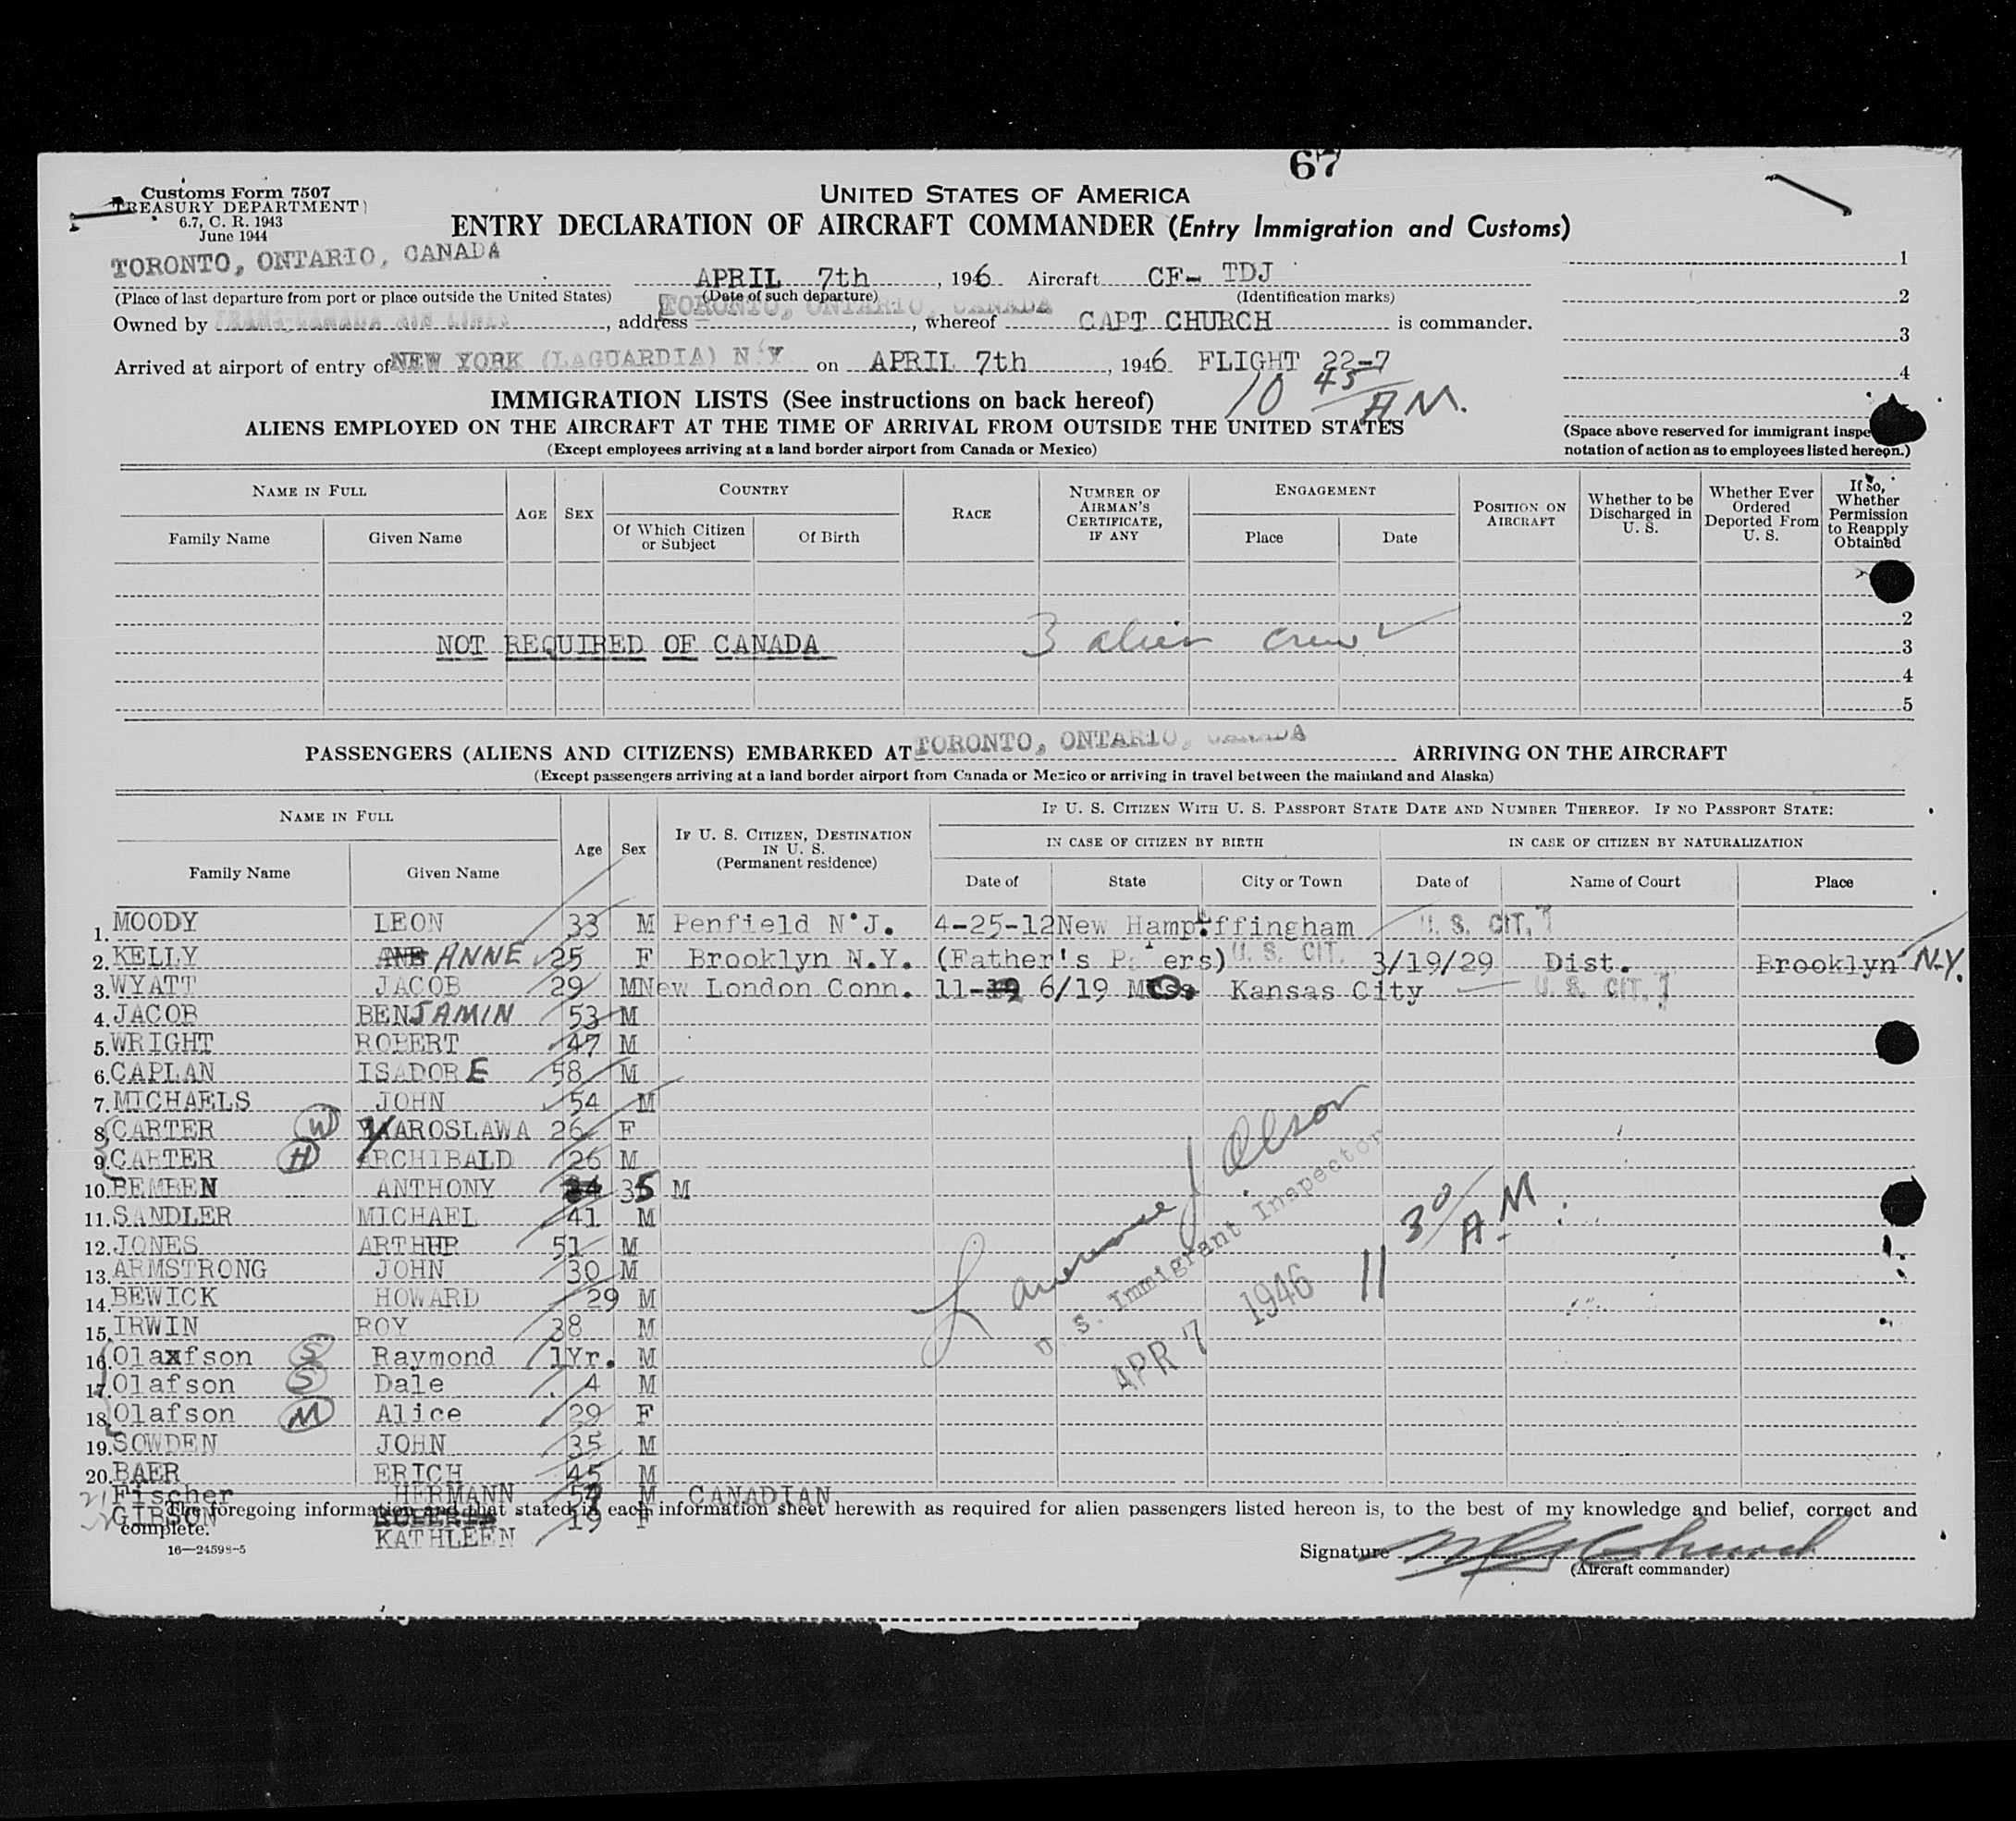 67
Customs Form 7507
TREASURY DEPARTMENT
6.7, C. R. 1943
June 1944
UNITED STATES OF AMERICA
ENTRY DECLARATION OF AIRCRAFT COMMANDER (Entry Immigration and Customs)
TORONTO, ONTARIO, CANADA APRIL 7th, 1946 Aircraft CF- TDJ
(Place of last departure from port or place outside the United States) (Date of such departure) (Identification marks)
Owned by TRANS-CANADA AIR LINES, address TORONTO, ONTARIO, CANADA, whereof CAPT CHURCH is commander.
Arrived at airport of entry of NEW YORK (LAGUARDIA) N.Y. on APRIL 7th, 1946 FLIGHT 22-7
10 45/AM.
1
2
3
4
IMMIGRATION LISTS (See instructions on back hereof)
ALIENS EMPLOYED ON THE AIRCRAFT AT THE TIME OF ARRIVAL FROM OUTSIDE THE UNITED STATES
(Except employees arriving at a land border airport from Canada or Mexico)
(Space above reserved for immigrant inspe
notation of action as to employees listed hereon.)
NAME IN FULL
Family Name Given Name
AGE SEX
COUNTRY
Of Which Citizen or Subject Of Birth
RACE
NUMBER OF AIRMAN'S CERTIFICATE, IF ANY
ENGAGEMENT
Place Date
POSITION ON AIRCRAFT
Whether to be Discharged in U. S.
Whether Ever Ordered Deported From U. S.
If so, Whether Permission to Reapply Obtained
2
NOT REQUIRED OF CANADA 3 alien crew 3
4
5
PASSENGERS (ALIENS AND CITIZENS) EMBARKED AT TORONTO, ONTARIO, CANADA ARRIVING ON THE AIRCRAFT
(Except passengers arriving at a land border airport from Canada or Mexico or arriving in travel between the mainland and Alaska)
NAME IN FULL
Family Name Given Name
Age Sex
IF U. S. CITIZEN, DESTINATION IN U. S.
(Permanent residence)
IF U. S. CITIZEN WITH U. S. PASSPORT STATE DATE AND NUMBER THEREOF. IF NO PASSPORT STATE:
IN CASE OF CITIZEN BY BIRTH IN CASE OF CITIZEN BY NATURALIZATION
Date of State City or Town Date of Name of Court Place
1. MOODY LEON 33 M Penfield N.J. 4-25-12 New Hamp. Effingham U. S. CIT.
2. KELLY ANNE 25 F Brooklyn N.Y. (Father's Papers) U. S. CIT. 3/19/29 Dist. Brooklyn N.Y.
3. WYATT JACOB 29 M New London Conn. 11- 6/19 Mo. Kansas City U. S. CIT.
4. JACOB BENJAMIN 53 M
5. WRIGHT ROBERT 47 M
6. CAPLAN ISADORE 58 M
7. MICHAELS JOHN 54 M
8. CARTER W YAROSLAWA 26 F
9. CARTER H ARCHIBALD 26 M
10. BEMBEN ANTHONY 35 M
11. SANDLER MICHAEL 41 M
12. JONES ARTHUR 51 M
13. ARMSTRONG JOHN 30 M
14. BEWICK HOWARD 29 M
15. IRWIN ROY 38 M
16. Olaxfson S Raymond 1Yr. M
17. Olafson S Dale 4 M
18. Olafson M Alice 29 F
19. SOWDEN JOHN 35 M
20. BAER ERICH 45 M
21 Fischer HERMANN M CANADIAN
GIBSON KATHLEEN 19 F
Lawrence J Olson
U. S. Immigrant Inspector
APR 7 1946
11 30/AM
The foregoing information and that stated in each information sheet herewith as required for alien passengers listed hereon is, to the best of my knowledge and belief, correct and
complete.
16—24598-5
Signature
(Aircraft commander)